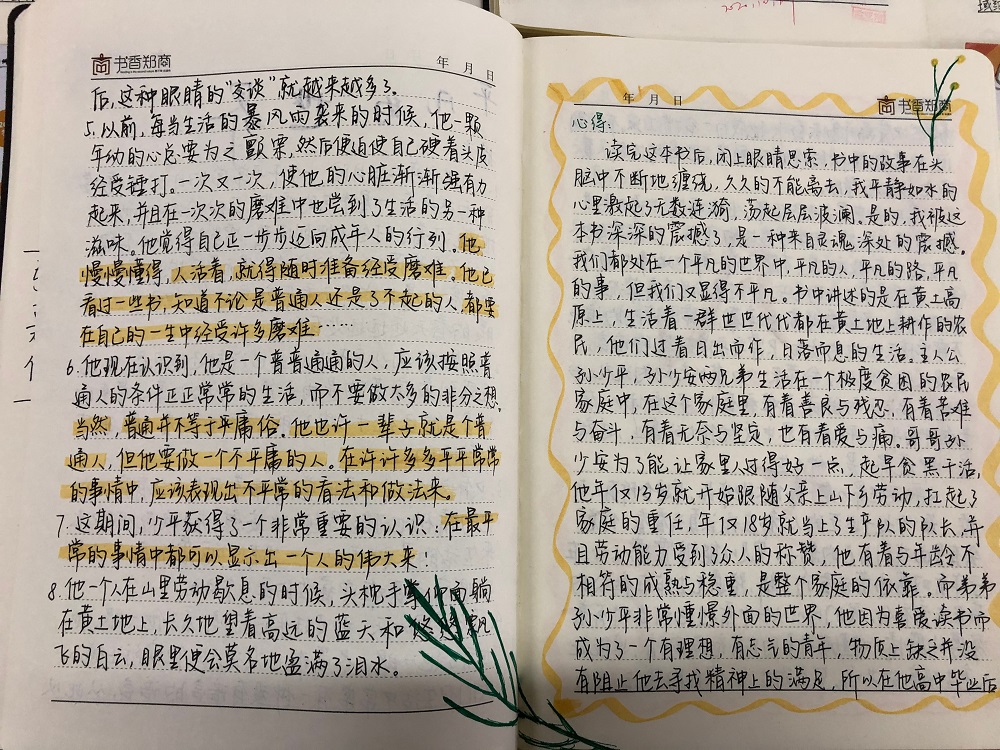 书香郑商
年 月 日
后,这种眼睛的“交谈”就越来越多了。
5.以前,每当生活的暴风雨袭来的时候,他一颗
年幼的心总要为之颤栗,然后便迫使自己硬着头皮
经受锤打。一次又一次,使他的心脏渐渐强有力
起来,并且在一次次的磨难中也尝到了生活的另一种
滋味。他觉得自己正一步步迈向成年人的行列。他
慢慢懂得,人活着,就得随时准备经受磨难。他已
看过一些书,知道不论是普通人还是了不起的人,都要
在自己的一生中经受许多磨难……
6.他现在认识到,他是一个普普通通的人,应该按照普
通人的条件正正常常的生活,而不要做太多的非分之想。
当然,普通并不等于平庸俗。他也许一辈子就是个普
通人,但他要做一个不平庸的人。在许许多多平平常常
的事情中,应该表现出不平常的看法和做法来。
7.这期间,少平获得了一个非常重要的认识:在最平
常的事情中都可以显示出一个人的伟大来!
8.他一个人在山里劳动歇息的时候,头枕手掌仰面躺
在黄土地上,长久地望着高远的蓝天和悠悠飘
飞的白云,眼里便会莫名地盈满了泪水。
年 月 日
书香郑商
心得:
读完这本书后,闭上眼睛思索,书中的故事在头
脑中不断地缠绕,久久的不能离去,我平静如水的
心里激起了无数涟漪,荡起层层波澜。是的,我被这
本书深深的震撼了,是一种来自灵魂深处的震撼。
我们都处在一个平凡的世界中,平凡的人,平凡的路,平凡
的事,但我们又显得不平凡。书中讲述的是在黄土高
原上,生活着一群世世代代都在黄土地上耕作的农
民,他们过着日出而作,日落而息的生活。主人公
孙少平,孙少安两兄弟生活在一个极度贫困的农民
家庭中,在这个家庭里,有着善良与残忍,有着苦难
与奋斗,有着无奈与坚定,也有着爱与痛。哥哥孙
少安为了能让家里人过得好一点,起早贪黑干活,
他年仅13岁就开始跟随父亲上山下乡劳动,扛起了
家庭的重任,年仅18岁就当上了生产队的队长,并
且劳动能力受到了众人的称赞,他有着与年龄不
相符的成熟与稳重,是整个家庭的依靠。而弟弟
孙少平非常憧憬外面的世界,他因为喜爱读书而
成为了一个有理想,有志气的青年,物质上缺乏并没
有阻止他去寻找精神上的满足,所以在他高中毕业后